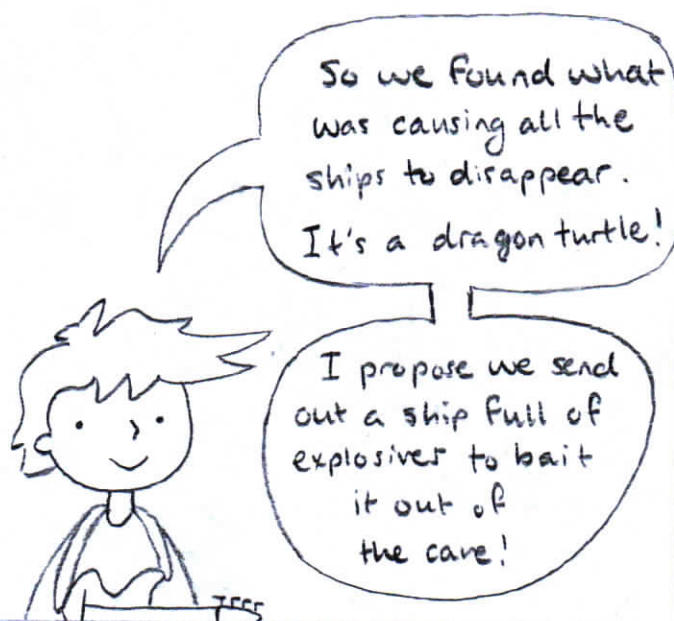 So we found what
was causing all the
ships to disappear.
It's a dragon turtle!
I propose we send
out a ship full of
explosives to bait
it out of
the cave!